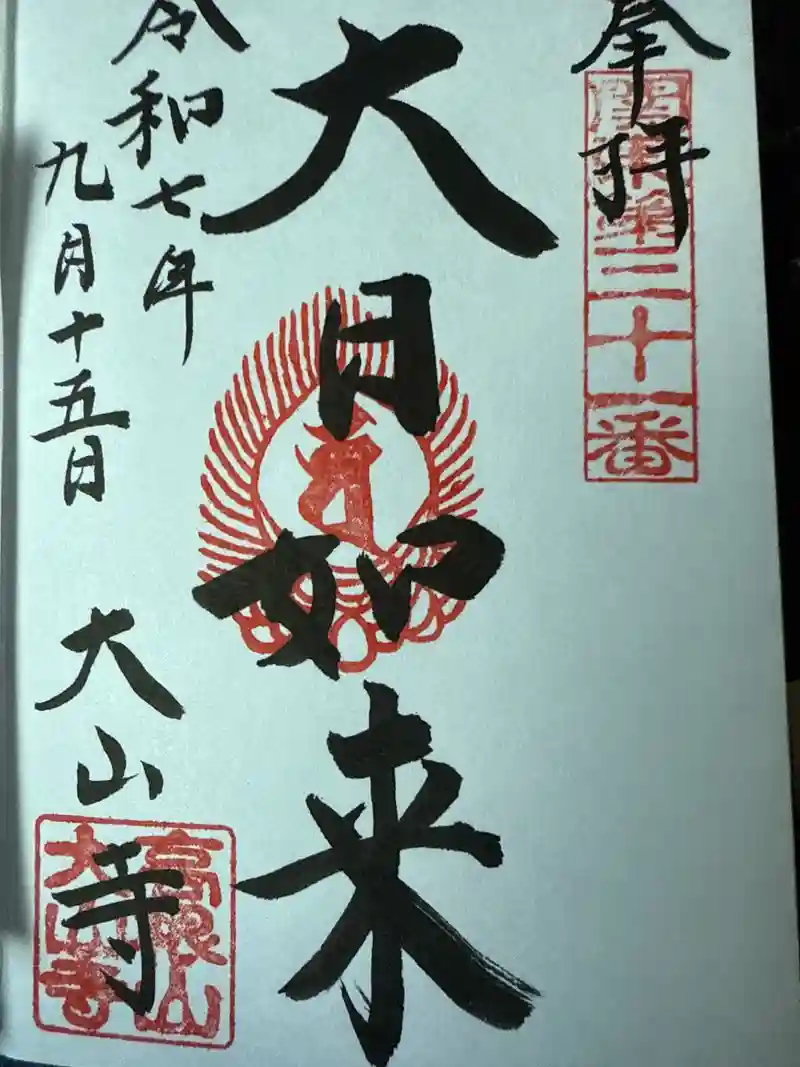 奉拝
関東第三十一番
大日如来
令和七年
九月十五日
大山寺
高山
大山寺